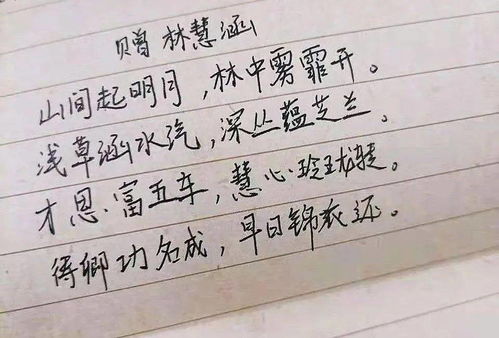 赠林慧涵
山间起明月,林中雾霏开。
浅草涵水汽,深丛蕴芝兰。
才思富五车,慧心玲珑裝。
得卿功名成,早日锦衣还。